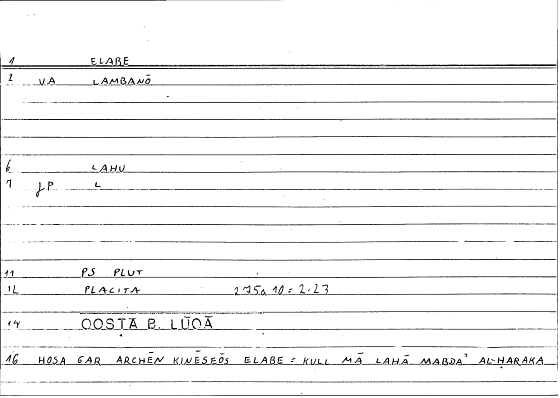 1 ELABE
2 VA LAMBANŌ
6 LAHU
7 JP L
11 PS PLUT
12 PLACITA 275a10 = 2.23
14 QOSṬĀ B. LŪQĀ
16 HOSA GAR ARCHĒN KINĒSEŌS ELABE = KULL MĀ LAHĀ MABDAʾ AL-ḤARAKA